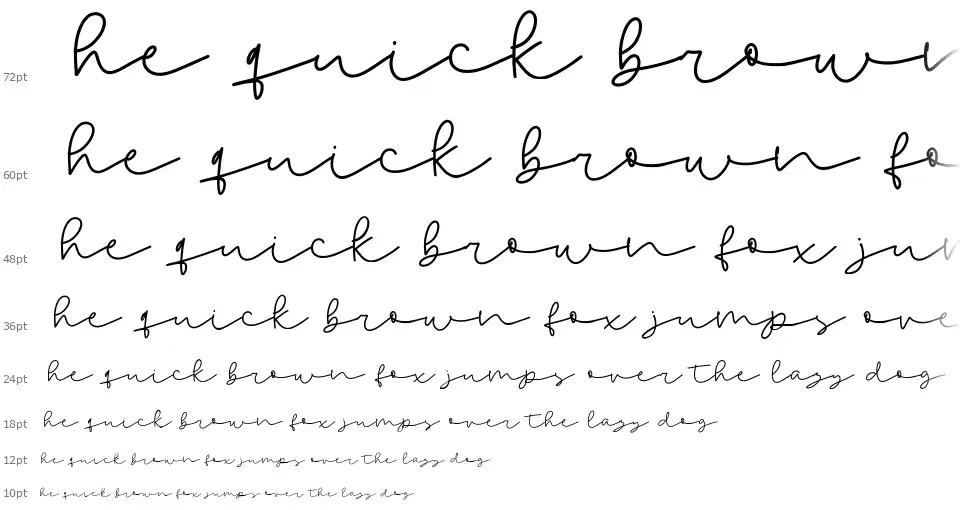 72pt he quick brown
60pt he quick brown fo
48pt he quick brown fox jun
36pt he quick brown fox jumps ove
24pt he quick brown fox jumps over the lazy dog
18pt he quick brown fox jumps over the lazy dog
12pt he quick brown fox jumps over the lazy dog
10pt he quick brown fox jumps over the lazy dog